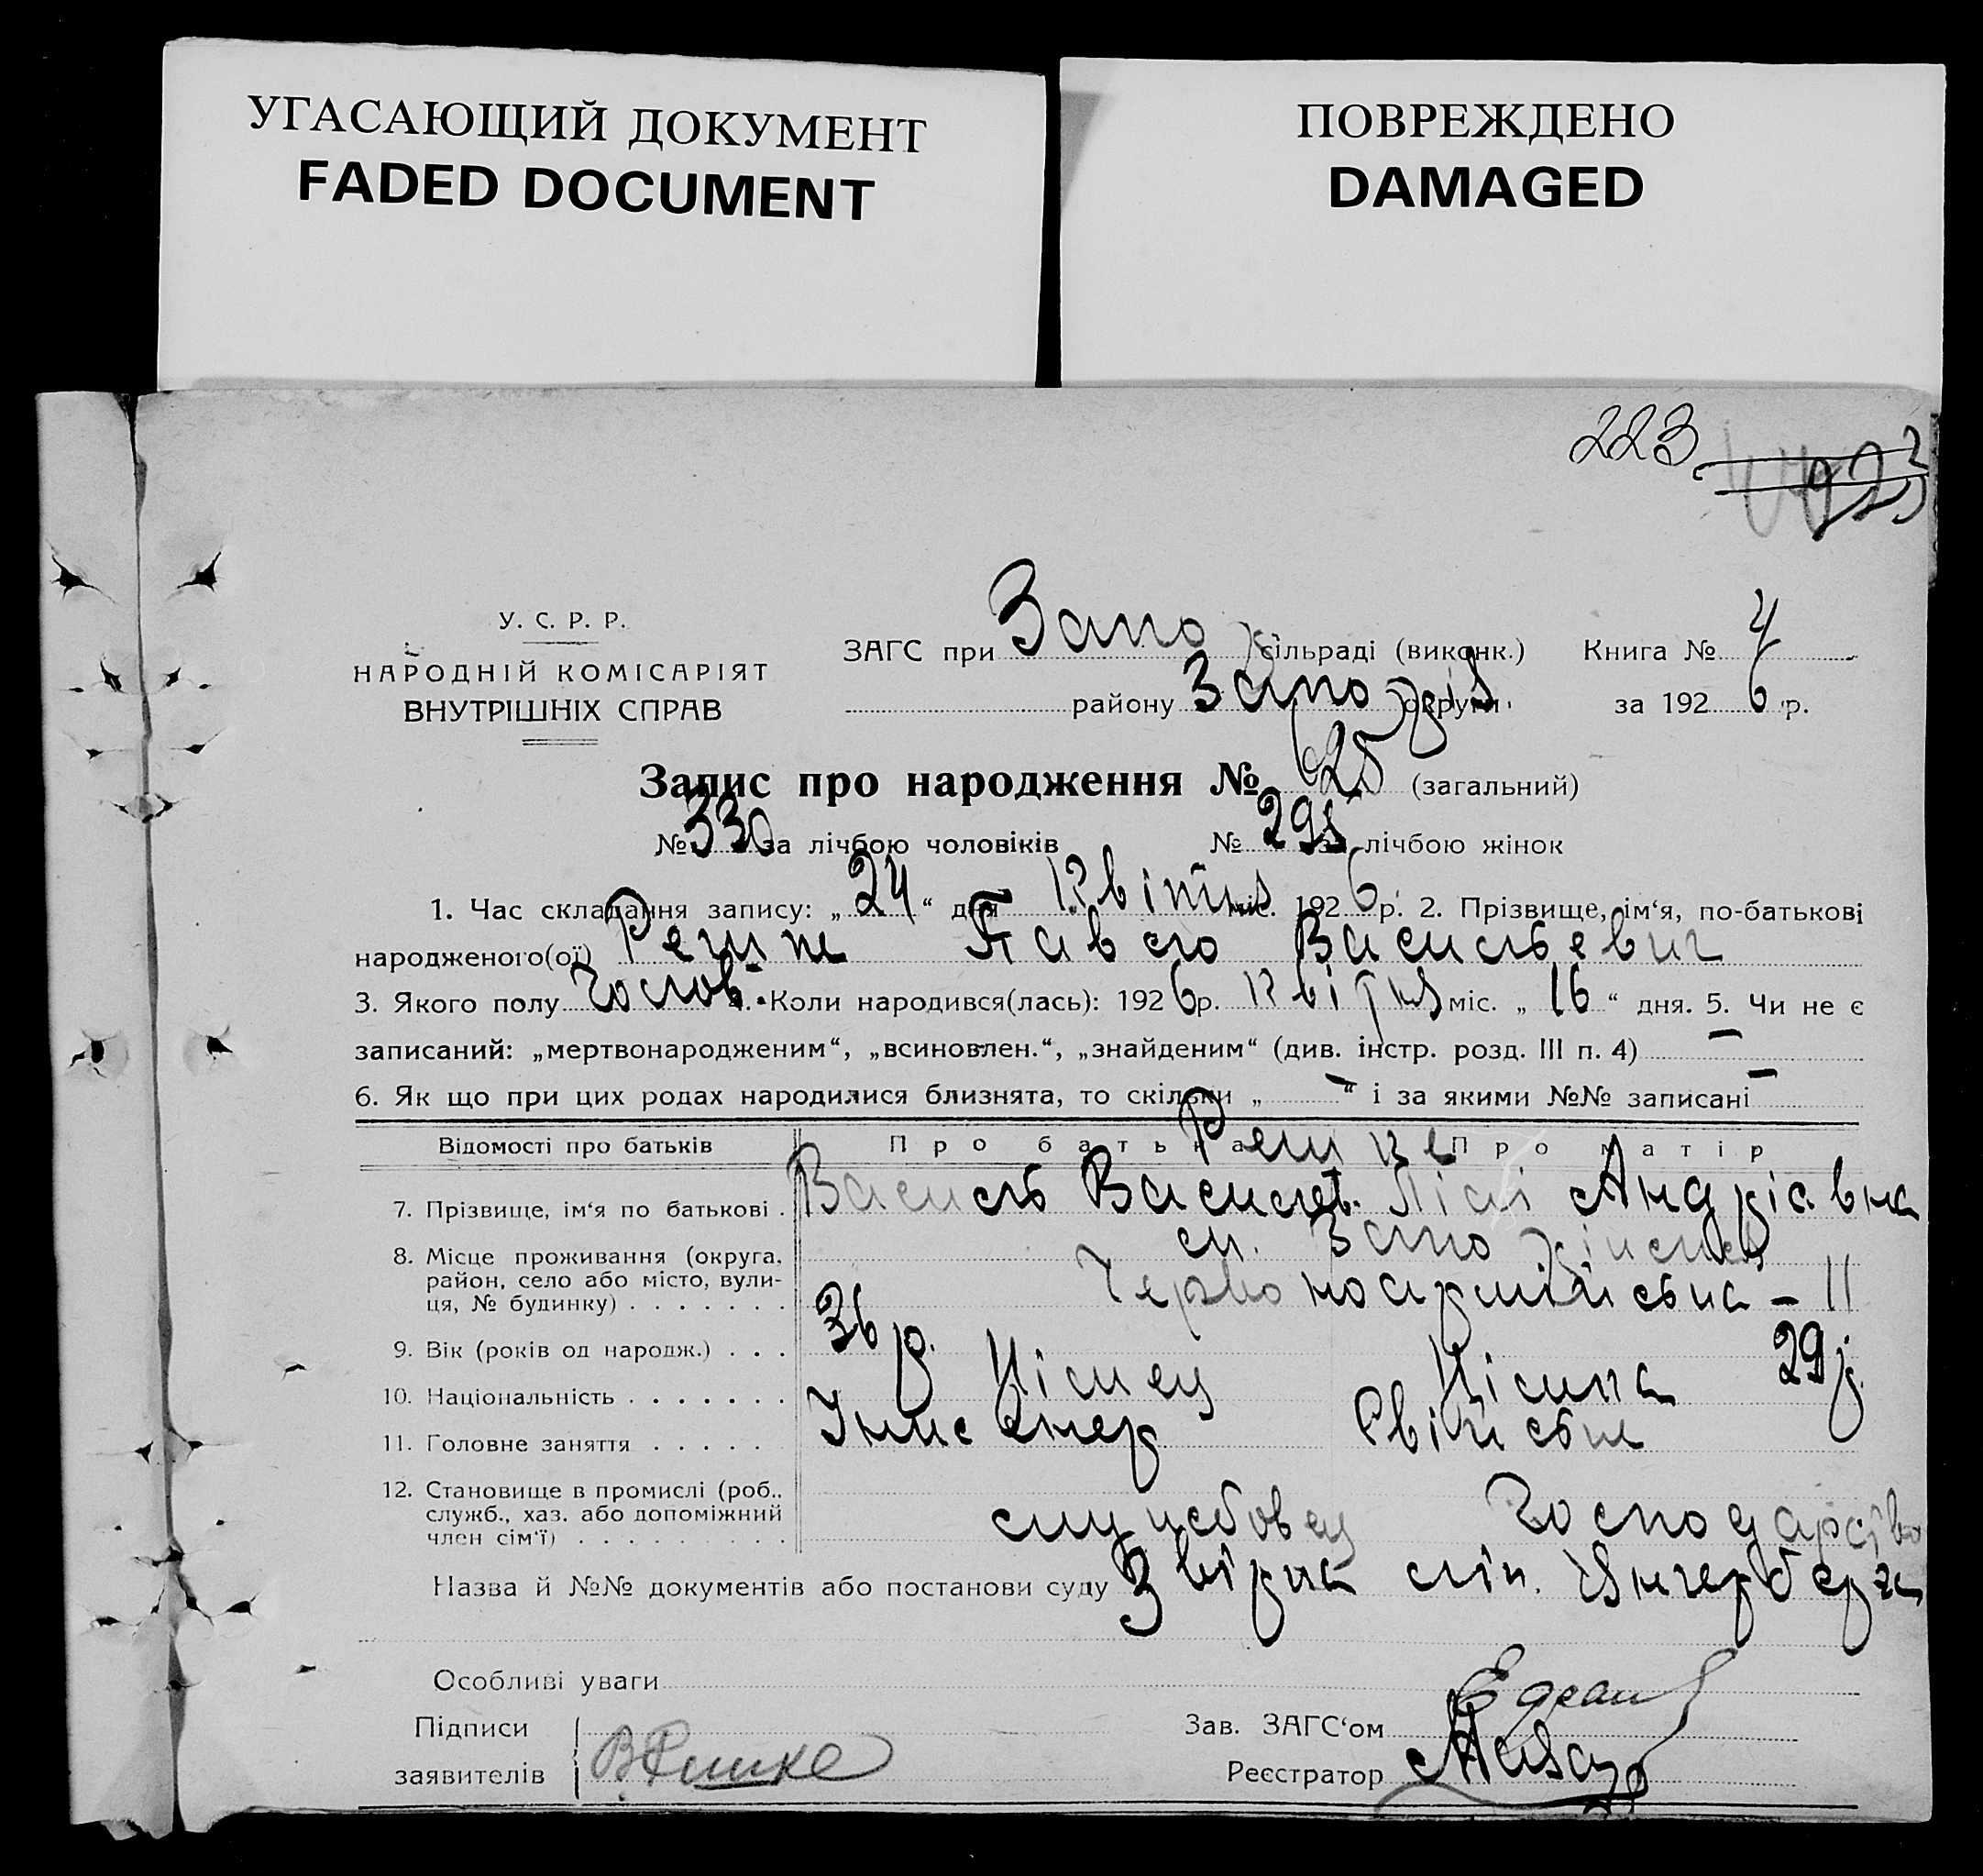 УГАСАЮЩИЙ ДОКУМЕНТ
FADED DOCUMENT
ПОВРЕЖДЕНО
DAMAGED
223
У. С. Р. Р.
НАРОДНІЙ КОМІСАРІЯТ
ВНУТРІШНІХ СПРАВ
ЗАГС при Запо сільраді (виконк.) Книга № 4
району Запорізь округи за 1926 р.
Запис про народження № 625 (загальний)
№ 330 за лічбою чоловіків № 295 за лічбою жінок
1. Час складання запису: „24“ дня Квітня міс. 1926 р. 2. Прізвище, ім‘я, по-батькові
народженого(ої) Павло Васильевич
3. Якого полу чолов. 4. Коли народився(лась): 1926 р. Квітня міс. „16“ дня. 5. Чи не є
записаний: „мертвонародженим“, „всиновлен.“, „знайденим“ (див. інстр. розд. III п. 4) —
6. Як що при цих родах народилися близнята, то скільки „—“ і за якими №№ записані —
Відомості про батьків Про батька Про матір
7. Прізвище, ім‘я по батькові . Василь Васильев. Андріавна
8. Місце проживання (округа, район, село або місто, вулиця, № будинку) . . . . . . .
Червоноармійська – 11
9. Вік (років од народж.) . . . 36 р. 29 р.
10. Національність . . . . . . . Німец Німка
11. Головне заняття . . . . . Інженер Свійське
12. Становище в промислі (роб., служб., хаз. або допоміжний член сім‘ї) . . . . . . . . . службовец господарство
Назва й №№ документів або постанови суду
Особливі уваги
Підписи
заявителів
Зав. ЗАГС‘ом
Реєстратор